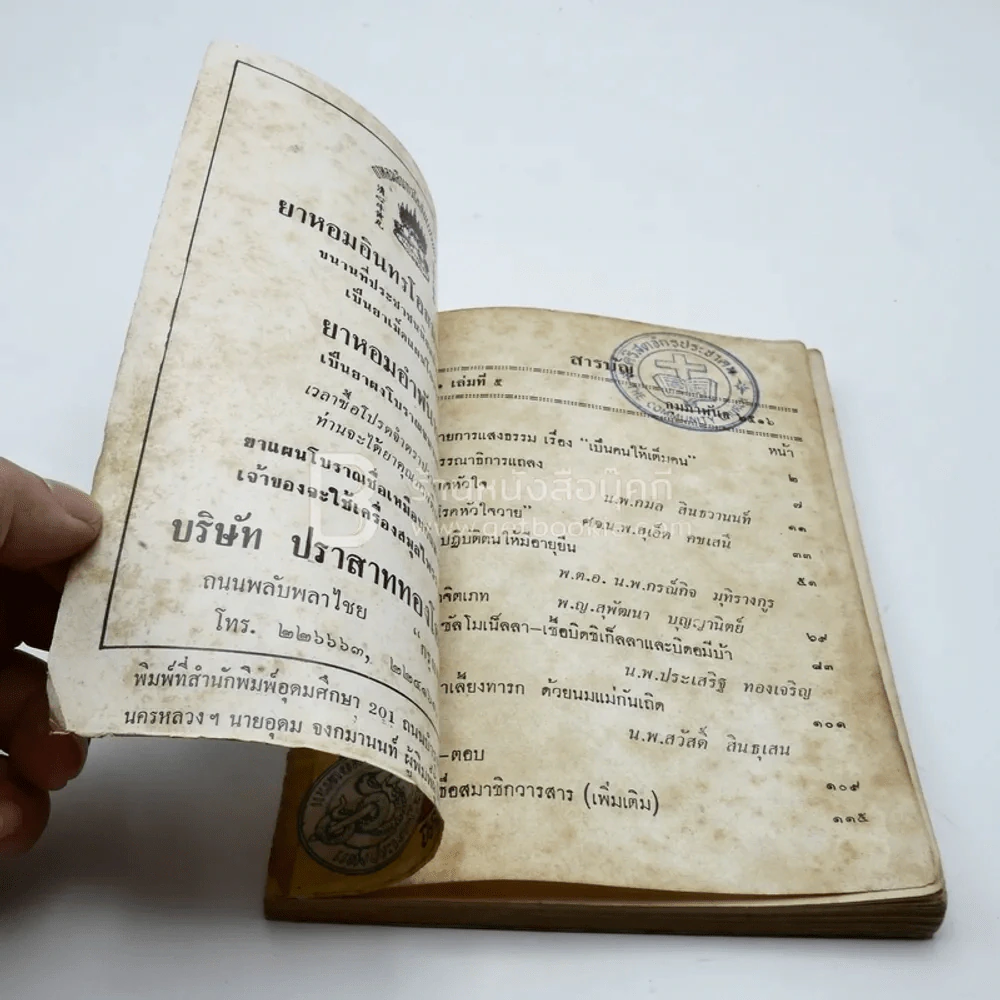 ยาหอมอินทรโอสถ
ขนานที่ประชาชนนิยม
เป็นยาเม็ดแผนโบ
ยาหอมอำพัน
เป็นยาผงโบราณ
เวลาซื้อโปรดจำตรา
ท่านจะได้ยาคุณภาพ
ยาแผนโบราณชื่อเหมือน
เจ้าของจะใช้เครื่องสมุนไพร
บริษัท ปราสาททองโ
ถนนพลับพลาไชย กรุง
โทร. ๒๒๖๖๖๓,
พิมพ์ที่สำนักพิมพ์อุดมศึกษา 201 ถนน
นครหลวงฯ นายอุดม จงกมานนท์ ผู้พิมพ์
สารบัญ
เล่มที่ ๕ กุมภาพันธ์ ๒๕๑๖
หน้า
ายการแสงธรรม เรื่อง "เป็นคนให้เต็มคน" ๒
รรณาธิการแถลง ๗
หัวใจ น.พ.กมล สินธวานนท์ ๑๑
โรคหัวใจวาย" คชเสนี ๓๓
ปฏิบัติตนให้มีอายุยืน
พ.ต.อ. น.พ.กรณ์กิจ มุทิรางกูร ๕๑
จิตเภท พ.ญ.สุพัฒนา บุญญานิตย์ ๖๙
ซัลโมเน็ลลา–เชื้อบิดชิเก็ลลาและบิดอมีบ้า
น.พ.ประเสริฐ ทองเจริญ ๘๓
าเลี้ยงทารก ด้วยนมแม่กันเถิด
น.พ.สวัสดิ์ สินธุเสน ๑๐๑
–ตอบ ๑๐๙
ชื่อสมาชิกวารสาร (เพิ่มเติม) ๑๑๕
THE COMMUNITY
ร้านหนังสือบุ๊คกี
www.getbookie.com